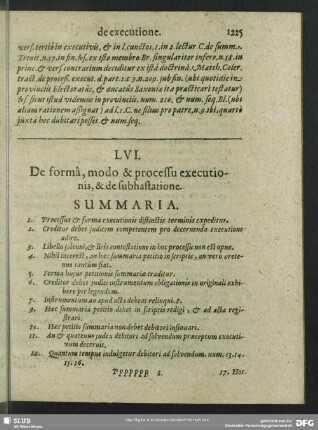 de executione. 1225
vers. tertiò in executivis, & in l. cunctos. 1. in 2 lectur C. de summ.
Trinit. n. 57. in fin. &c. ex isto membro Br. singulariter infero. n. 58. in
princ. & vers contrarium deciditur ex istâ doctrinâ: Matth. Coler.
tract. de process. execut. d part. 1. c 3. n. 209. sub fin. (ubi quotidie in
provinciis Electoratûs, & ducatûs Saxonia ita practicari testatur)
&c. sicut istud videmus in provinciis. num. 210. & num. seq. Bl. (ubi
aliam rationem assignat) ad l. 1. C. ne filius pro patre, n. 9. ibi, quarto
juxta hoc dubitari posset. & num. seq.
LVI.
De formâ, modo & processu executio-
nis, & de subhastatione.
SUMMARIA.
1. Processus & forma executionis distinctis terminis expeditur.
2. Creditor debet judicem competentem pro decernenda executione
adire.
3. Libello solenni, & litis contestatione in hoc processu non est opus.
4. Nihil interest, an hac summaria petitio in scriptis, an verò orete-
nus tantùm fiat.
5. Forma hujus petitionis summaria traditur.
6. Creditor debet judici instrumentum obligationis in originali exhi-
bere per legendum.
7. Instrumentum an apud acta debeat relinqui.
9. Hac summaria petitio debet in scriptis redigi, & ad acta regi-
strari.
10. Hac petitio summaria non debet debitori insinuari.
11. An & quatenus judex debitori ad solvendum praeceptum executi-
vum decernit.
12. Quantum tempus indulgetur debitori ad solvendum. num. 13. 14
15. 16.
Ppppppp 2. 17. Nos.
SLUB
DFG